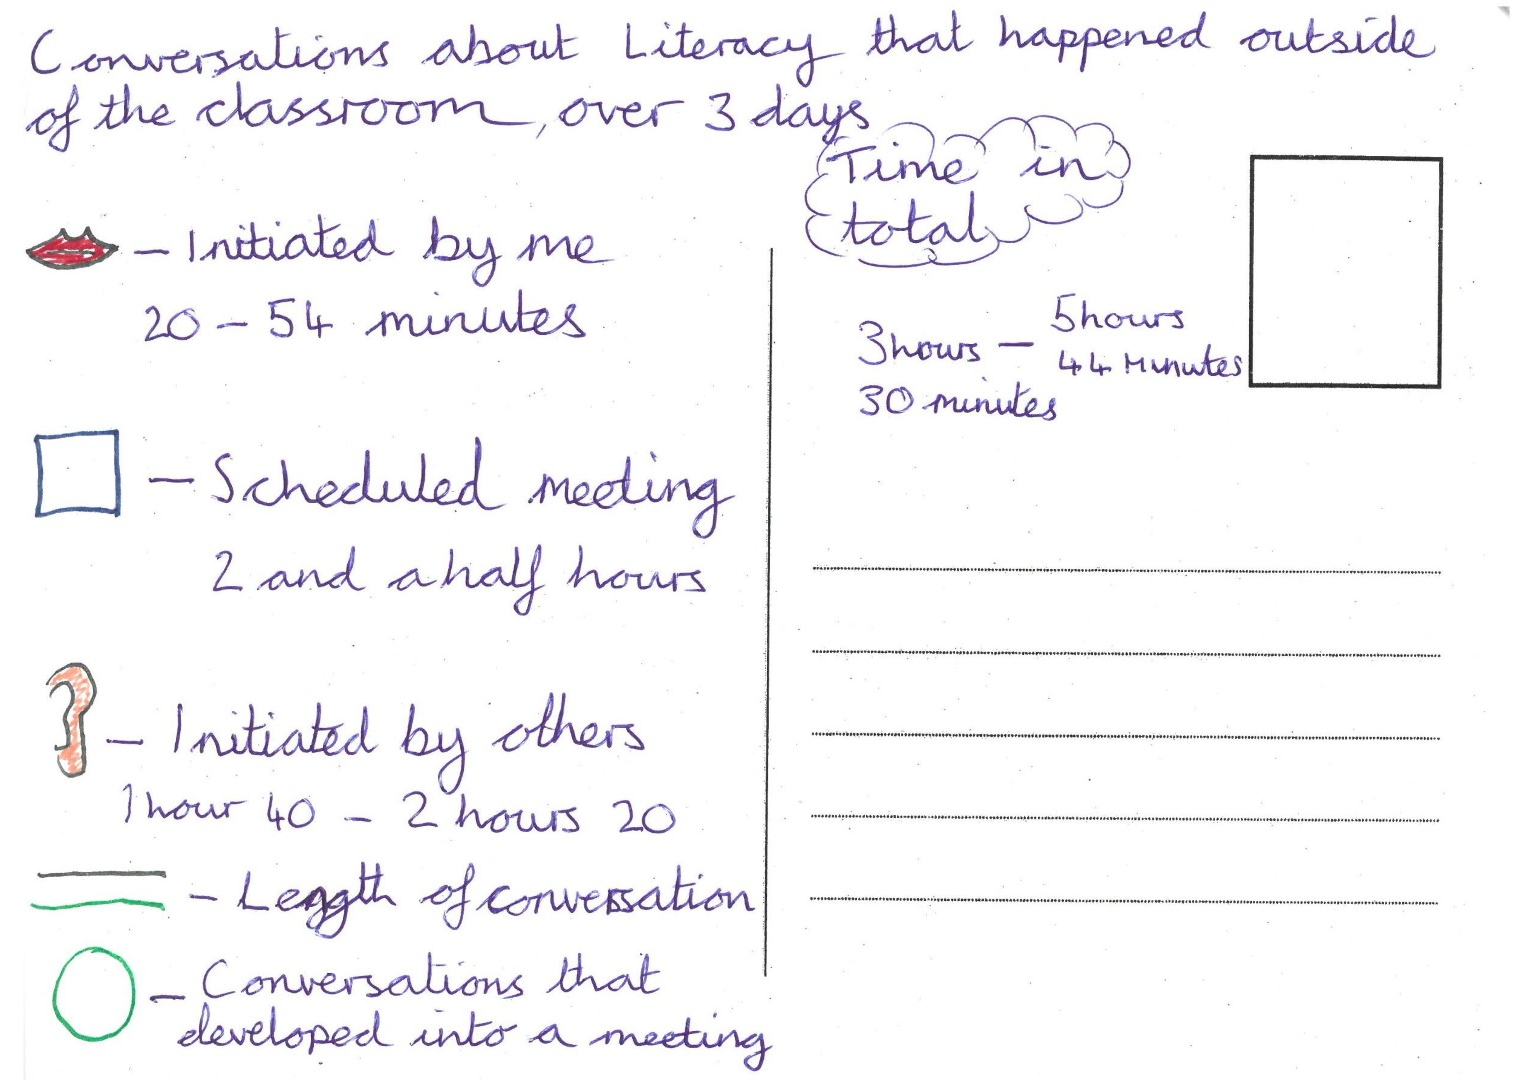 Conversations about Literacy that happened outside
of the classroom, over 3 days
Time in
total
– Initiated by me
20 – 54 minutes
3 hours – 5 hours
44 Minutes
30 minutes
– Scheduled meeting
2 and a half hours
– Initiated by others
1 hour 40 – 2 hours 20
– Length of conversation
– Conversations that
developed into a meeting